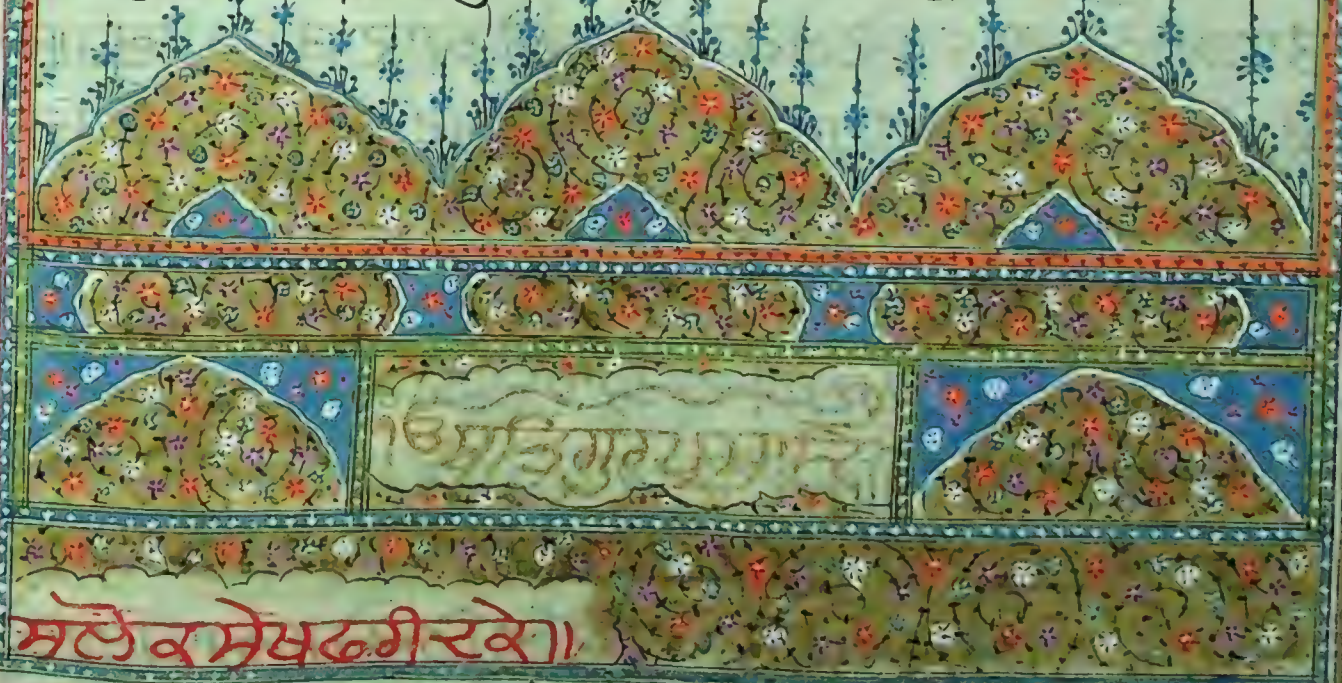 ੴ ਸਤਿਗੁਰਪ੍ਰਸਾਦਿ॥
ਸਲੋਕਸੇਖਫਰੀਦਕੇ॥